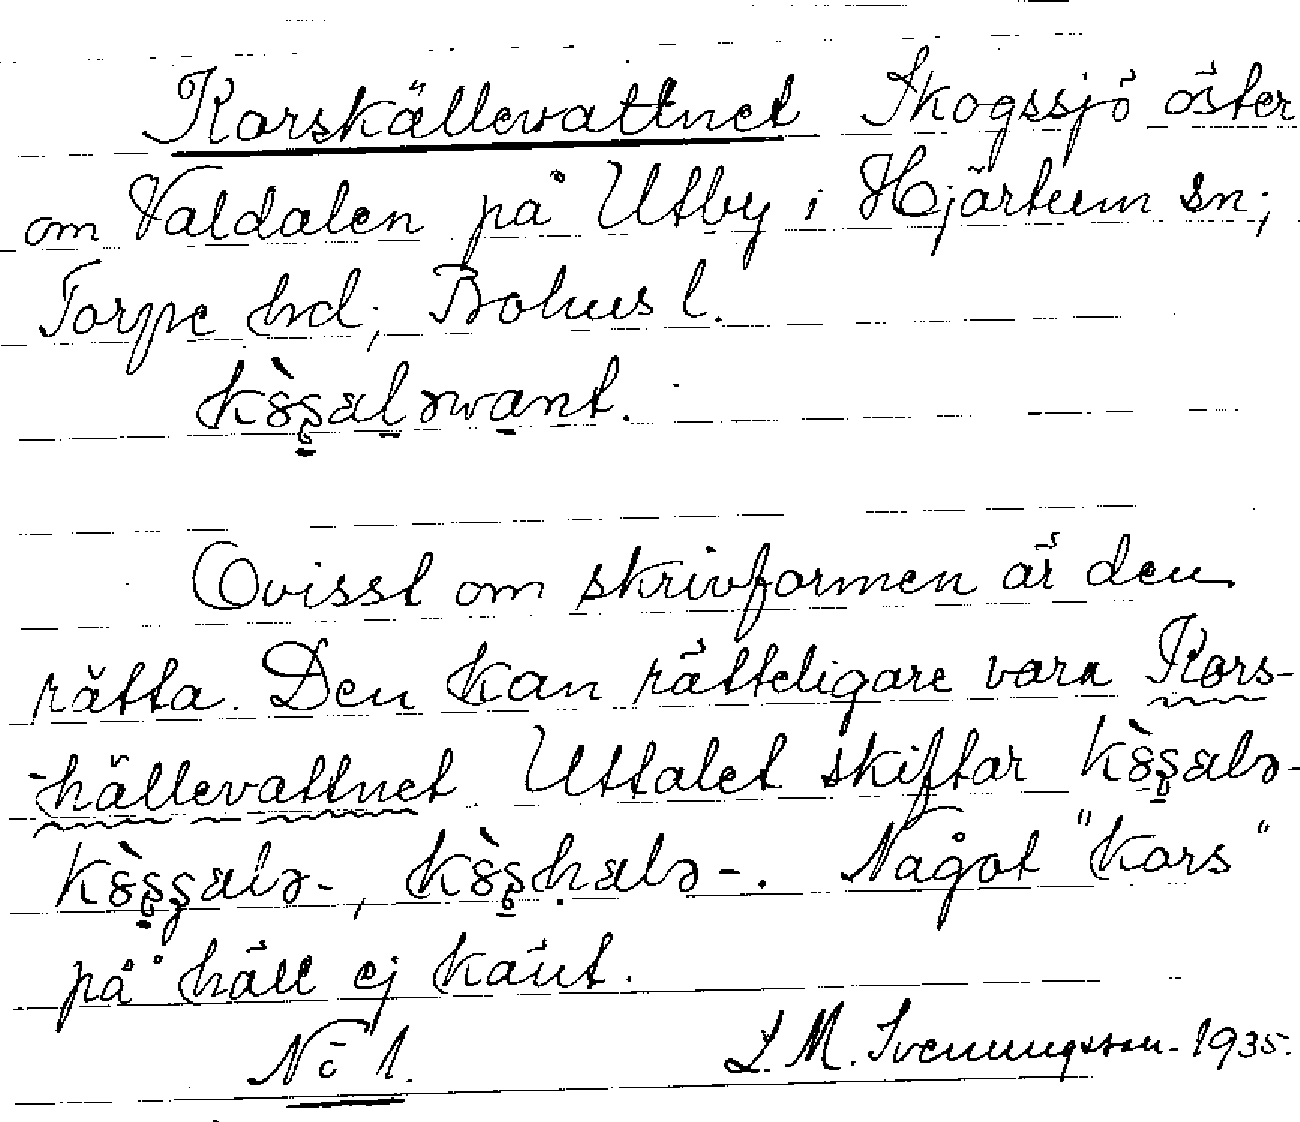 Korskällevattnet Skogssjö öster
om Valdalen på Utby i Hjärtum sn;
Torpe hd; Bohusl.
Ovisst om skrivformen är den
rätta. Den kan rätteligare vara Kors-
-hällevattnet. Uttalet skiftar
Något "kors"
på häll ej känt.
No 1. L. M. Svenungsson - 1935.